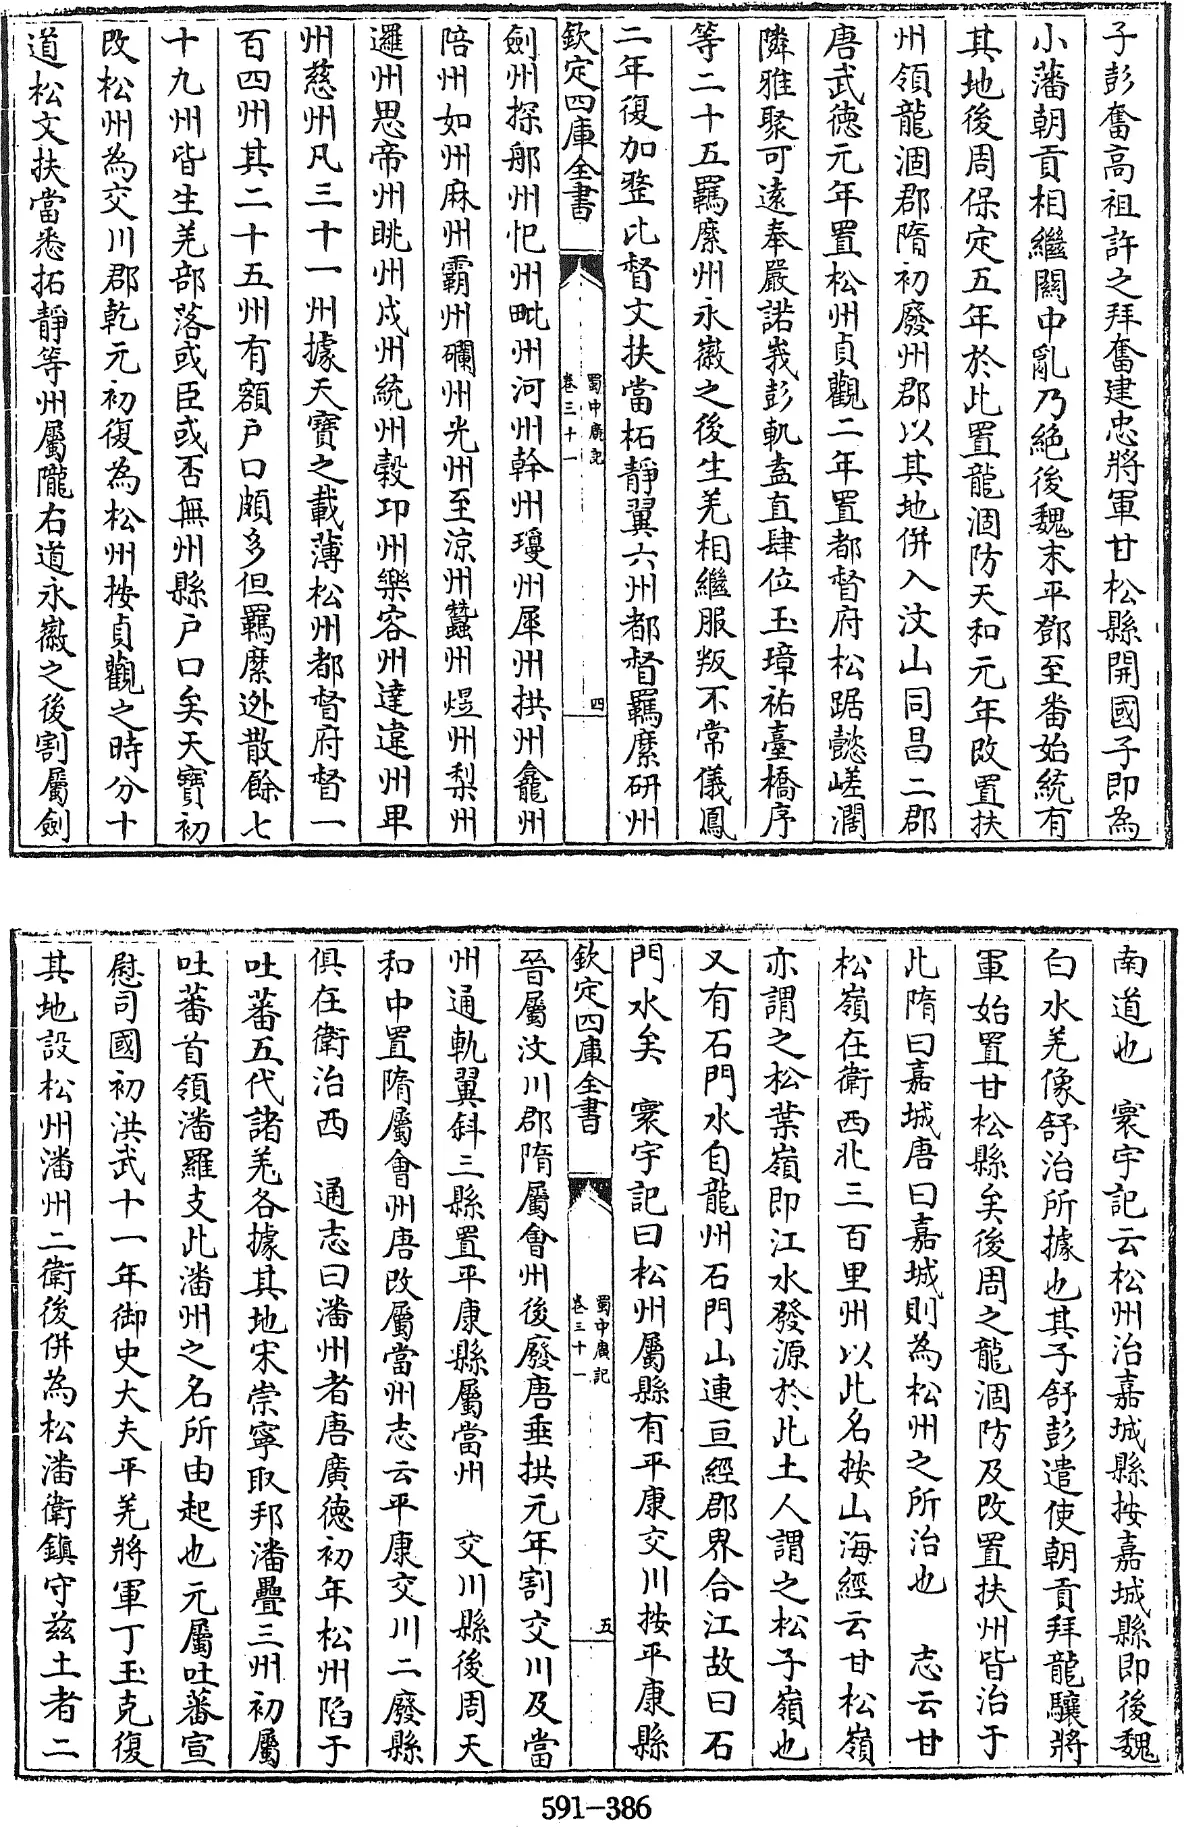 子彭奮高祖許之拜奮建忠將軍甘松縣開國子即為
小藩朝貢相繼關中亂乃絶後魏末平鄧至番始統有
其地後周保定五年於此置龍涸防天和元年改置扶
州領龍涸郡隋初廢州郡以其地併入汶山同昌二郡
唐武德元年置松州貞觀二年置都督府松踞懿嵯濶
隣雅聚可逺奉嚴諾峩彭軌盍直肆位玉璋祐臺橋序
等二十五羈縻州永徽之後生羌相繼服叛不常儀鳳
二年復加整比督文扶當柘靜翼六州都督羈縻研州
欽定四庫全書
蜀中廣記
卷三十一
四
劍州探那州忋州毗州河州幹州瓊州犀州拱州龕州
陪州如州麻州霸州礀州光州至涼州蠶州煜州梨州
邏州思帝州眺州戍州統州榖卭州樂容州達違州卑
州慈州凡三十一州據天寶之載薄松州都督府督一
百四州其二十五州有額户口頗多但羈縻迯散餘七
十九州皆生羌部落或臣或否無州縣户口矣天寶初
改松州為交川郡乾元初復為松州按貞觀之時分十
道松文扶當悉拓靜等州屬隴右道永徽之後割屬劍
南道也　寰宇記云松州治嘉城縣按嘉城縣即後魏
白水羌像舒治所據也其子舒彭遣使朝貢拜龍驤將
軍始置甘松縣矣後周之龍涸防及改置扶州皆治于
此隋曰嘉城唐曰嘉城則為松州之所治也　志云甘
松嶺在衛西北三百里州以此名按山海經云甘松嶺
亦謂之松葉嶺即江水發源於此土人謂之松子嶺也
又有石門水自龍州石門山連亘經郡界合江故曰石
門水矣　寰宇記曰松州屬縣有平康交川按平康縣
欽定四庫全書
蜀中廣記
卷三十一
五
晉屬汶川郡隋屬會州後廢唐垂拱元年割交川及當
州通軌翼斜三縣置平康縣屬當州　交川縣後周天
和中置隋屬會州唐改屬當州志云平康交川二廢縣
俱在衛治西　通志曰潘州者唐廣德初年松州陷于
吐蕃五代諸羌各據其地宋崇寧取邦潘疊三州初屬
吐蕃首領潘羅支此潘州之名所由起也元屬吐蕃宣
慰司國初洪武十一年御史大夫平羌將軍丁玉克復
其地設松州潘州二衛後併為松潘衛鎮守兹土者二
591-386